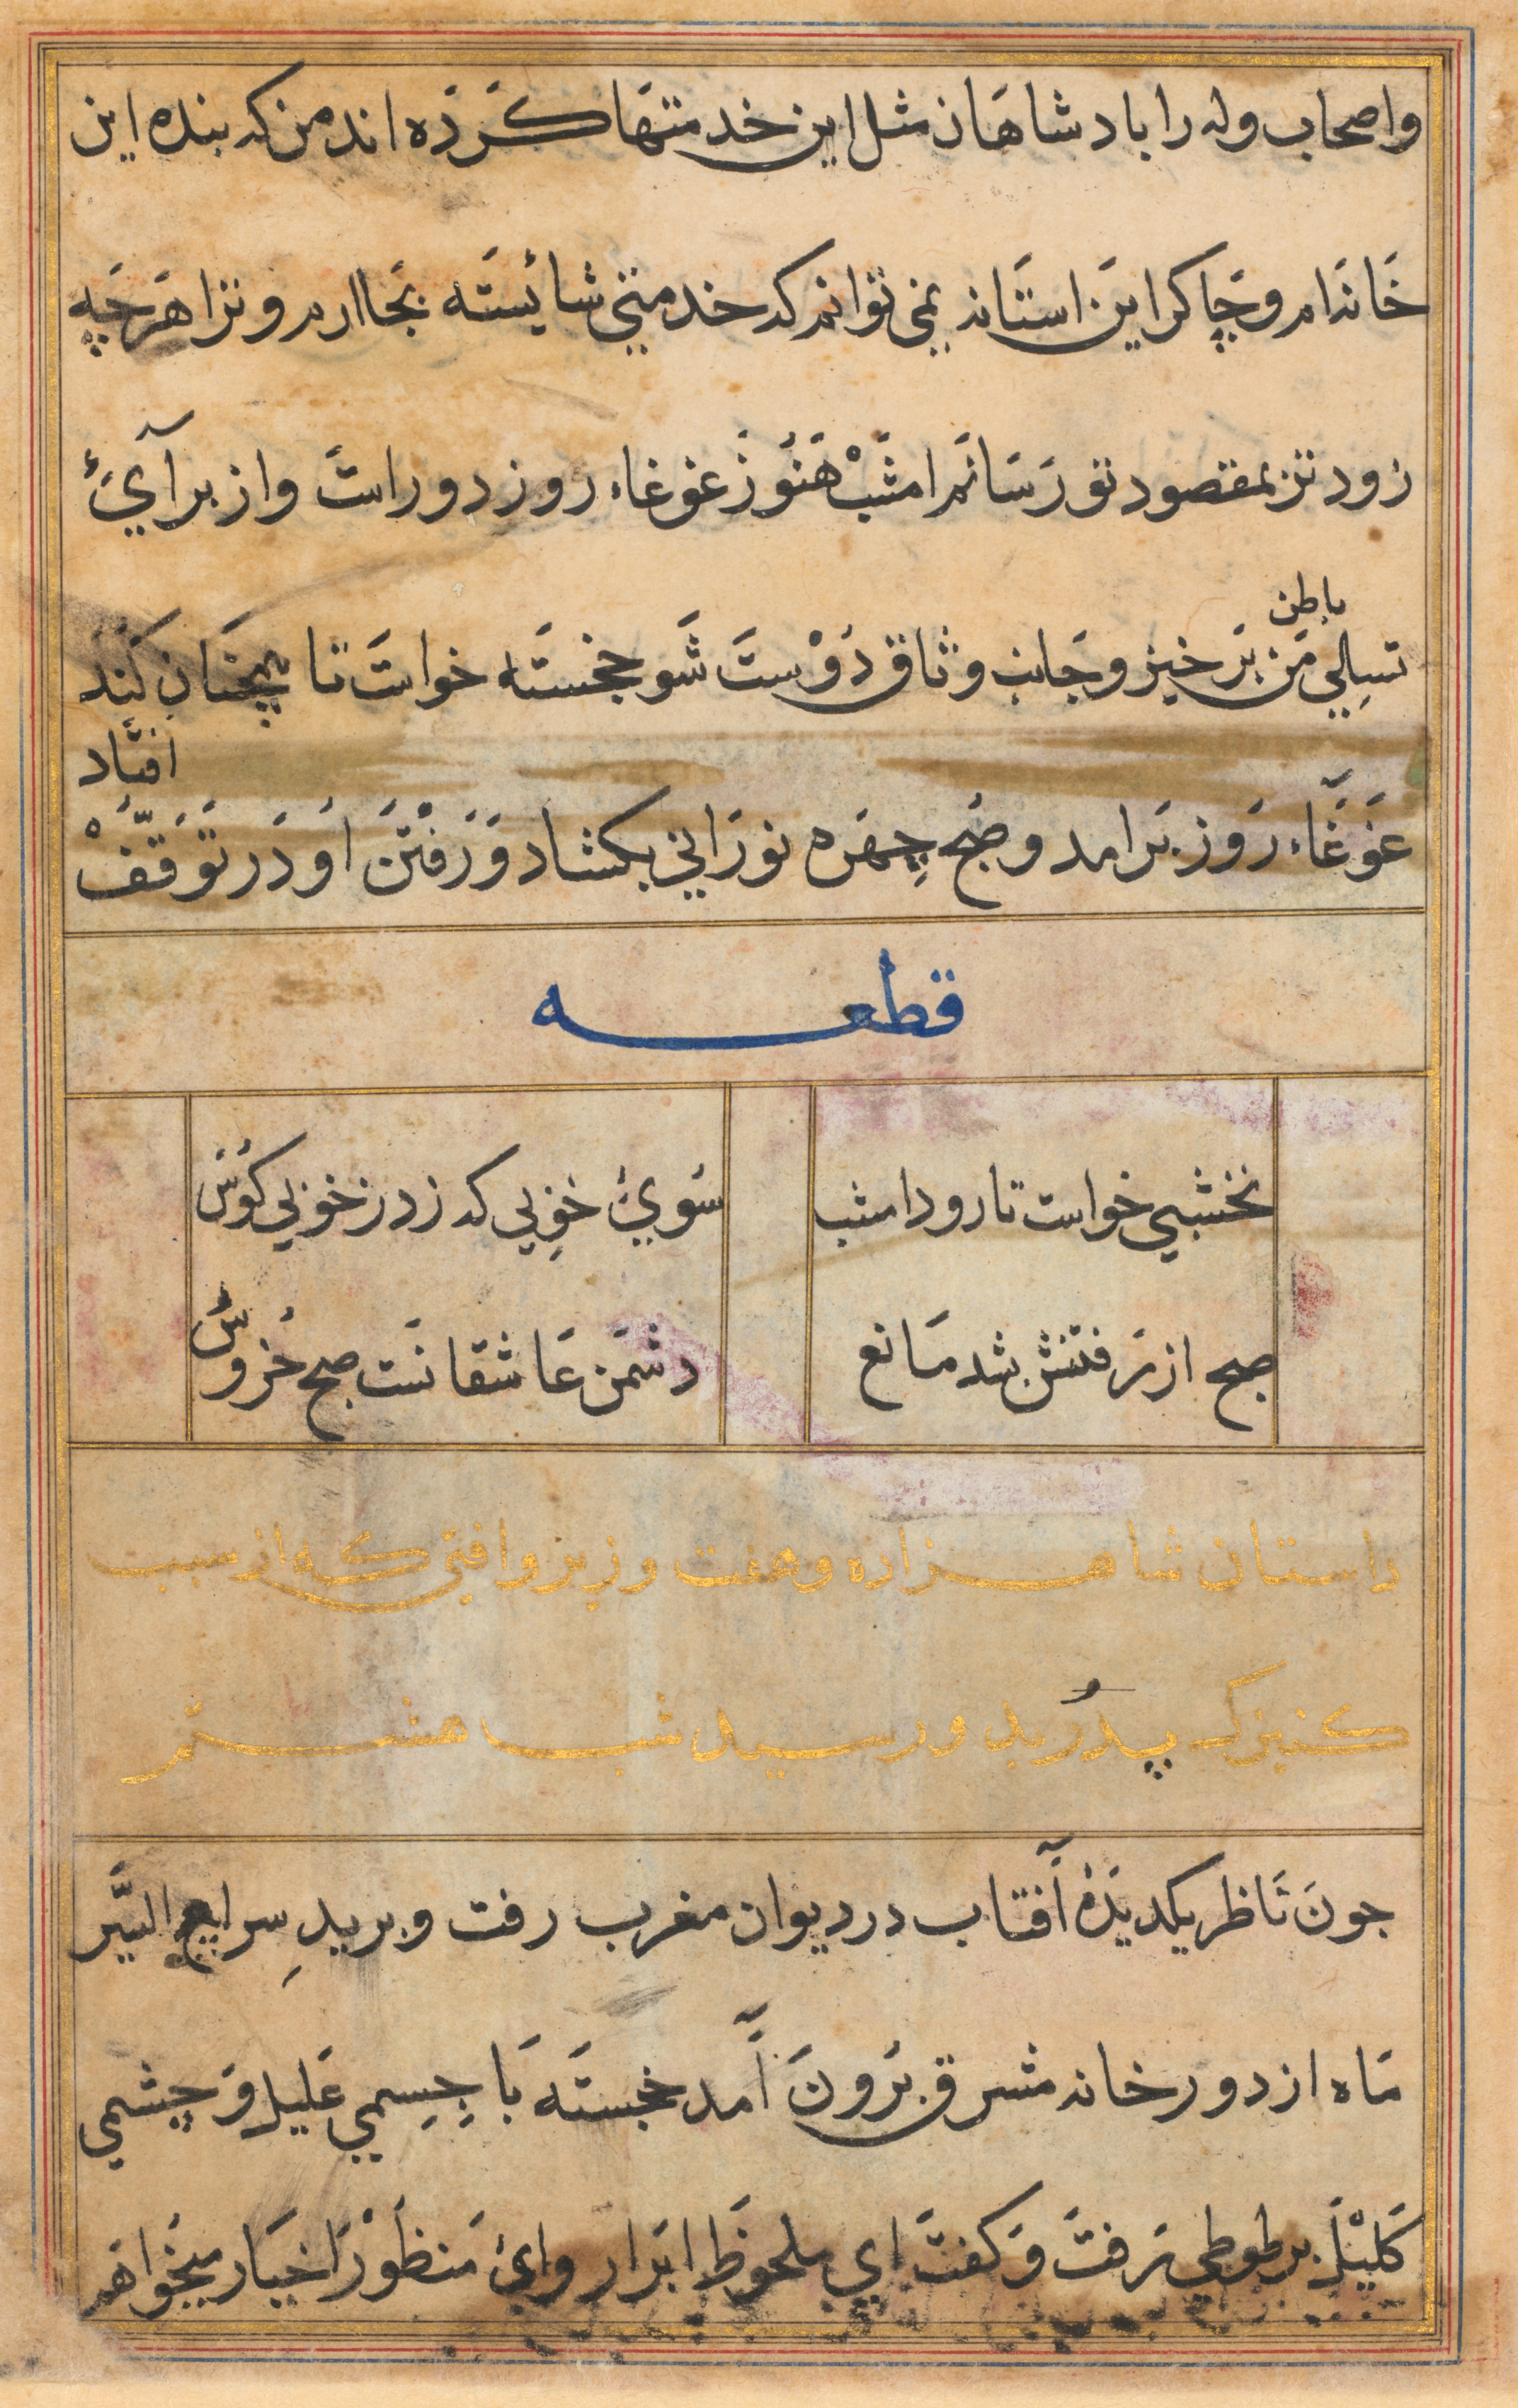 واصحاب وله را بادشاهان مثل این خدمتها کرده اند من که بنده این
خاندام و چاکر این استانه نمی توانم که خدمتی شائسته بجا ارم و ترا هرچه
زود تر بمقصود تو رسانم امشب هنوز غوغاء روز دور است و از برآیٔ
باطن
تسلی من بر خیز و جانب وثاق دوست شو خجسته خواست تا همچنان کند
غوغاء روز بر امد و صبح چهره نورانی بکشاد و رفتن او در توقف
افتاد
قطعه
نخشبی خواست تا رود امشب
سویٔ خوبی که زد ز خوبی کوس
صبح از رفتنش بشد مانع
دشمن عاشقانست صبح خروس
داستان شاهزاده و هفت وزیر و افتی که از سبب
کنیزک پدر بدو رسید شب هشتم
چون ناظر یکدیدهٔ آفتاب در دیوان مغرب رفت و برید سریع السیر
ماه از دور خانه مشرق برون آمد خجسته با جسمی علیل و چشمی
کلیل بر طوطی رفت و کفت ای ملحوظ ابرار و ایٔ منظور اخیار میخواهم